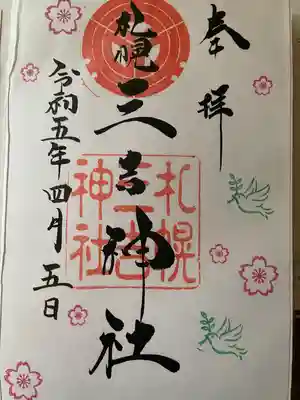 奉拝
札幌
三吉神社
令和五年四月五日
札幌
三吉
神社